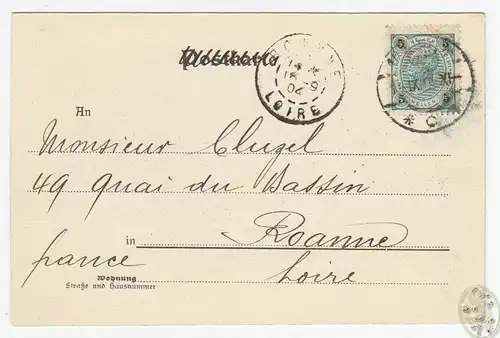 ROANNE
LOIRE
5 5
* c
An
Monsieur Clugel
49 Quai du Bassin
in Roanne
france Loire
Wohnung
Straße und Hausnummer